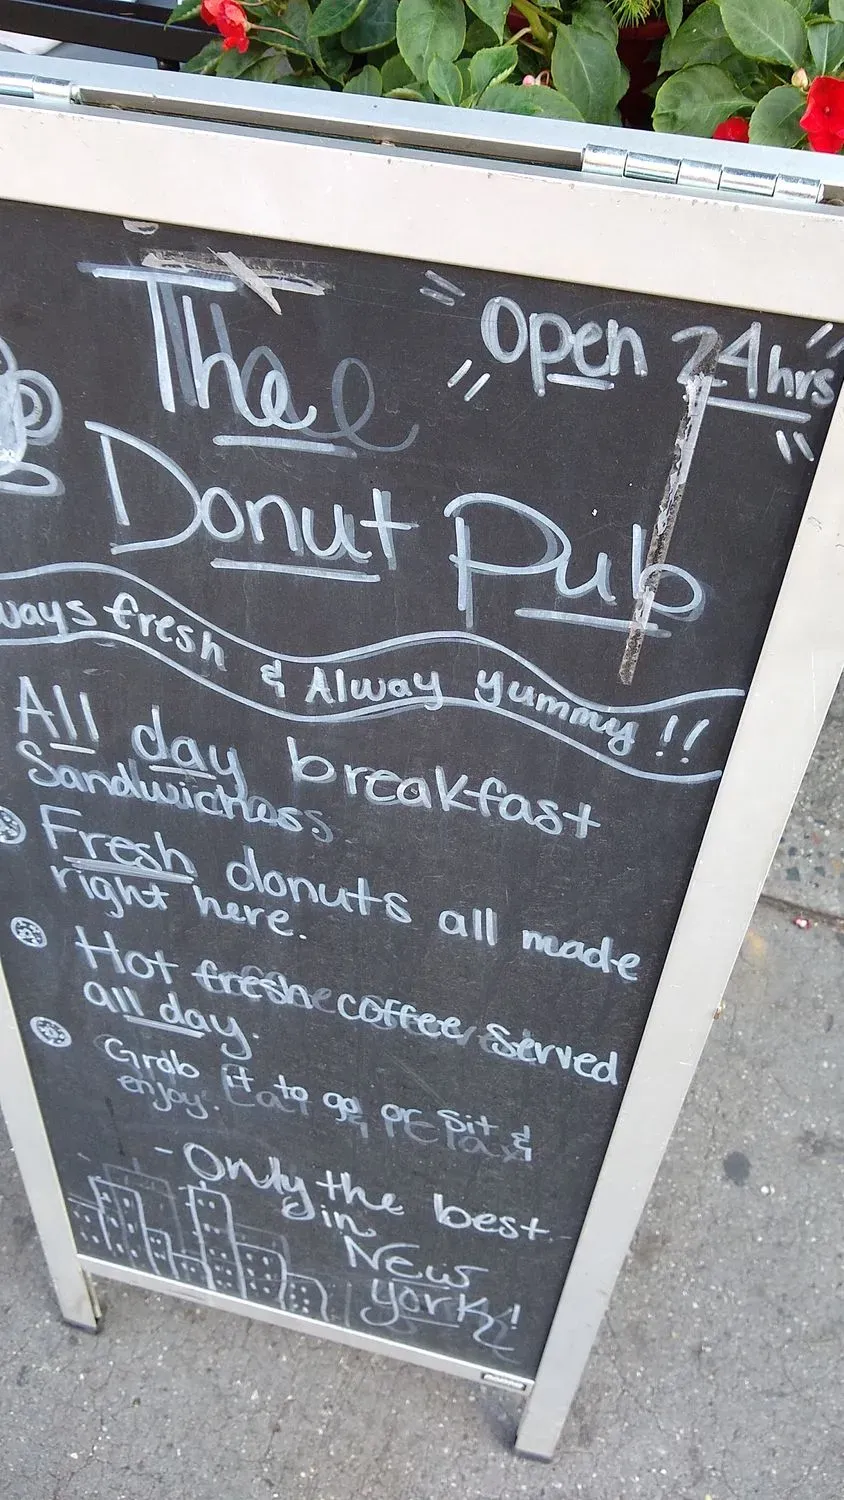 The
Open 24hrs
Donut Pub
ways fresh & Alway yummy!!
All day breakfast
Sandwiches
Fresh donuts all made
right here.
Hot fresh coffee served
all day.
Grab it to go or sit &
enjoy.
- Only the best -
in
New
York!